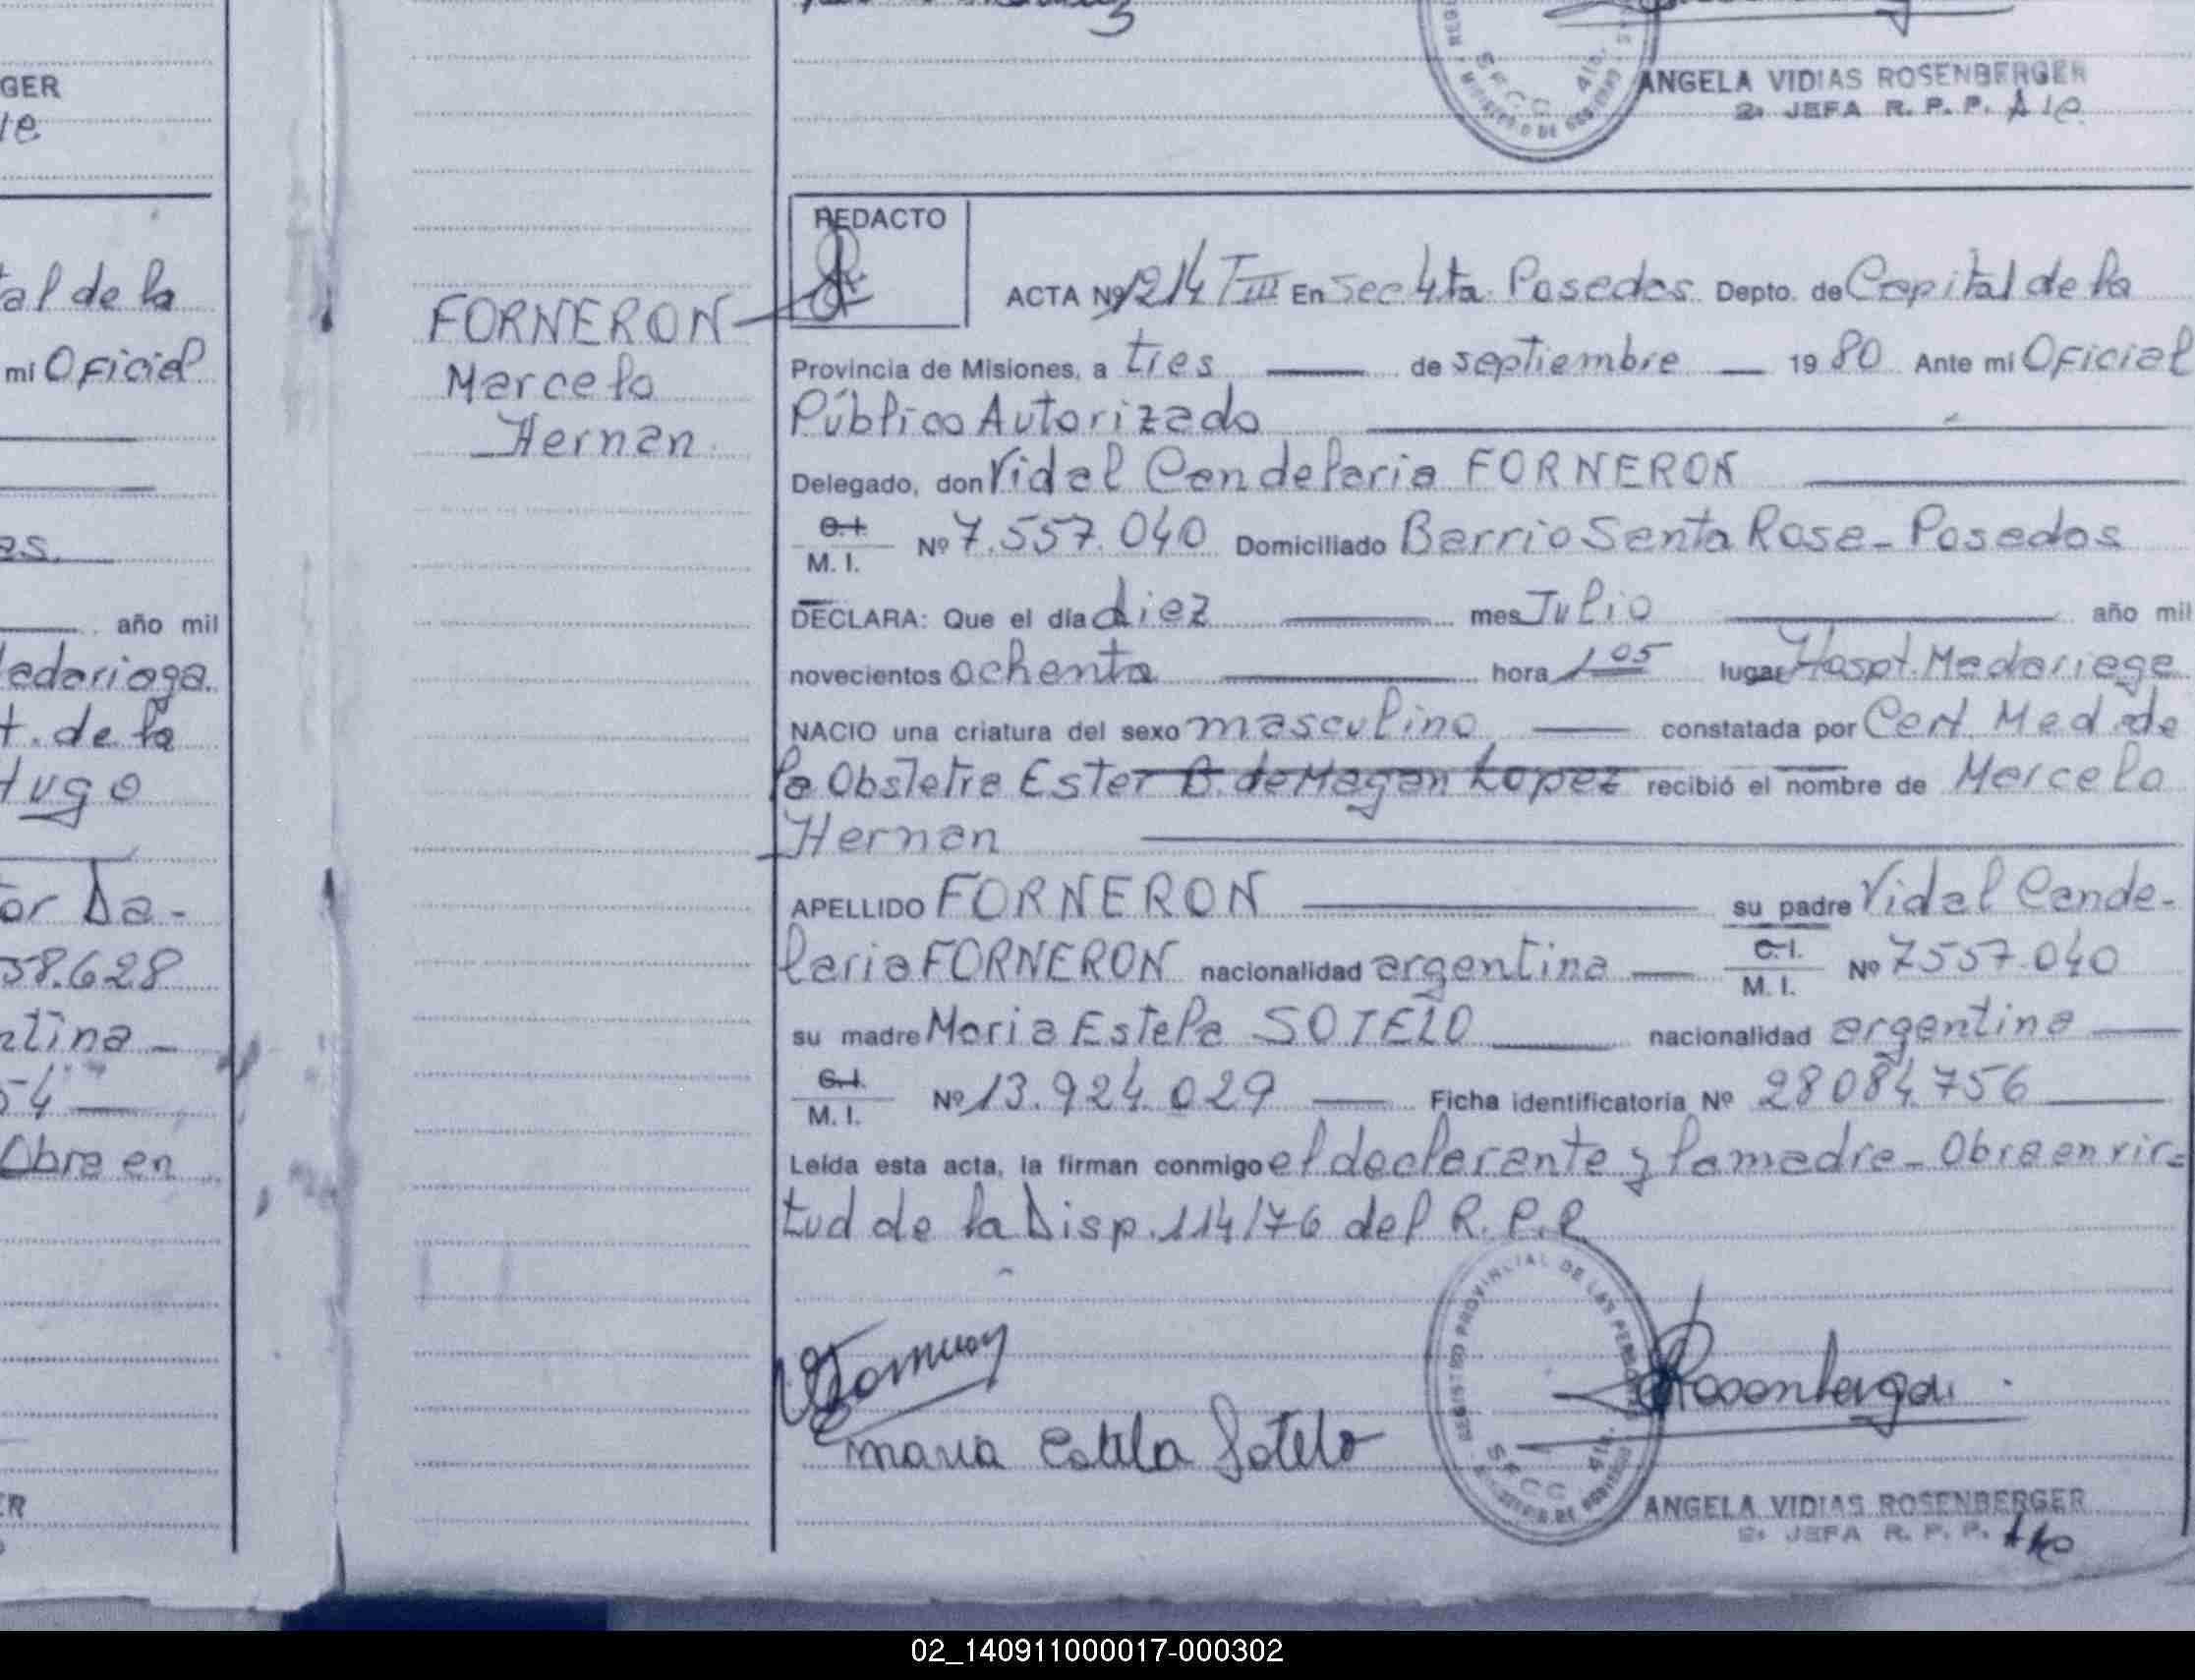 GER
ANGELA VIDIAS ROSENBERGER
2ª JEFA R. P. P.
al de la
mi Oficial
año mil
t. de la
Hugo
or Da-
58.628
ntina
54
Obra en
FORNERON
Marcelo
Hernan
REDACTO
ACTA Nº 1214 TIII En Sec 4ta Posadas Depto. de Capital de la
Provincia de Misiones, a tres de septiembre 1980 Ante mi Oficial
Público Autorizado
Delegado, don Vidal Candelario FORNERON
C.I.
M. I. Nº 7.557.040 Domiciliado Barrio Santa Rosa - Posadas
DECLARA: Que el día diez mes Julio año mil
novecientos ochenta hora 1 05 lugar Hospt. Madariaga
NACIO una criatura del sexo masculino constatada por Cert. Med de
la Obstetra Ester B. de Magan Lopez recibió el nombre de Marcelo
Hernan
APELLIDO FORNERON su padre Vidal Cande-
lario FORNERON nacionalidad argentina C.I.
M. I. Nº 7557.040
su madre Maria Estela SOTELO nacionalidad argentina
C.I.
M. I. Nº 13.924.029 Ficha identificatoria Nº 28084.756
Leída esta acta, la firman conmigo el declarante y la madre - Obra en vir-
tud de la Disp. 114/76 del R.P.P.
maria Estela Sotelo
REGISTRO PROVINCIAL DE LAS PERSONAS
Rosenberger
ANGELA VIDIAS ROSENBERGER
2ª JEFA R. P. P.
02_140911000017-000302